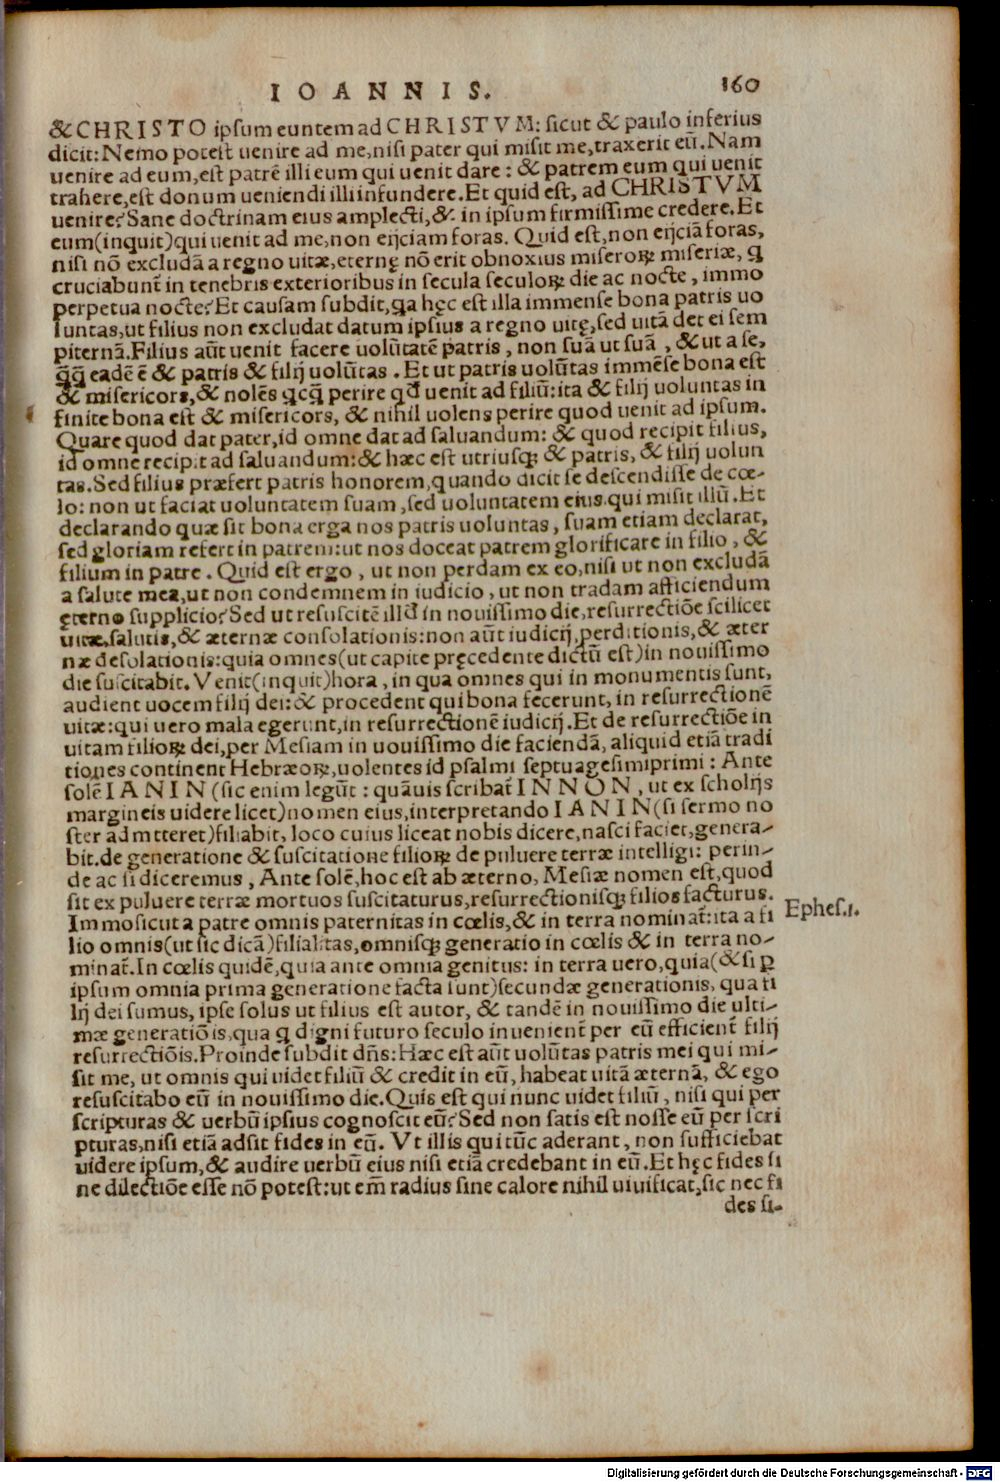 IOANNIS. 160
& CHRISTO ipsum euntem ad CHRISTVM: sicut & paulo inferius
dicit: Nemo potest uenire ad me, nisi pater qui misit me, traxerit eū. Nam
uenire ad eum, est patrē illi eum qui uenit dare: & patrem eum qui uenit
trahere, est donum ueniendi illi infundere. Et quid est, ad CHRISTVM
uenire? Sane doctrinam eius amplecti, & in ipsum firmissime credere. Et
eum (inquit) qui uenit ad me, non eijciam foras. Quid est, non eijciā foras,
nisi nō excludā a regno uitæ, eternę nō erit obnoxius miseroꝝ miseriæ, q̃
cruciabunt̃ in tenebris exterioribus in secula seculoꝝ die ac nocte, immo
perpetua nocte? Et causam subdit, q̃a hęc est illa immense bona patris uo
luntas, ut filius non excludat datum ipsius a regno uitę, sed uitā det ei sem
piternā. Filius aūt uenit facere uolūtatē patris, non suā ut suā, & ut a se,
q̃q̃ eadē ē & patris & filij uolūtas. Et ut patris uolūtas immēse bona est
& misericors, & nolēs q̃cq̃ perire qđ uenit ad filiū: ita & filij uoluntas in
finite bona est & misericors, & nihil uolens perire quod uenit ad ipsum.
Quare quod dat pater, id omne dat ad saluandum: & quod recipit filius,
id omne recipit ad saluandum: & hæc est utriusq; & patris, & filij uolun
tas. Sed filius præfert patris honorem, quando dicit se descendisse de cœ-
lo: non ut faciat uoluntatem suam, sed uoluntatem eius, qui misit illū. Et
declarando quæ sit bona erga nos patris uoluntas, suam etiam declarat,
sed gloriam refert in patrem: ut nos doceat patrem glorificare in filio, &
filium in patre. Quid est ergo, ut non perdam ex eo, nisi ut non excludā
a salute mea, ut non condemnem in iudicio, ut non tradam afficiendum
ęterno supplicio? Sed ut resuscitē illđ in nouissimo die, resurrectiōe scilicet
uitæ, salutis, & æternæ consolationis: non aūt iudicij, perditionis, & æter
næ desolationis: quia omnes (ut capite pręcedente dictū est) in nouissimo
die suscitabit. Venit (inquit) hora, in qua omnes qui in monumentis sunt,
audient uocem filij dei: & procedent qui bona fecerunt, in resurrectionē
uitæ: qui uero mala egerunt, in resurrectionē iudicij. Et de resurrectiōe in
uitam filioꝝ dei, per Mesiam in uouissimo die faciendā, aliquid etiā tradi
tiones continent Hebræoꝝ, uolentes id psalmi septuagesimiprimi: Ante
solē IANIN (sic enim legūt: quāuis scribat̃ INNON, ut ex scholijs
margineis uidere licet) nomen eius, interpretando IANIN (si sermo no
ster admitteret) filiabit, loco cuius liceat nobis dicere, nasci faciet, genera-
bit. de generatione & suscitatione filioꝝ de puluere terræ intelligi: perin-
de ac si diceremus, Ante solē, hoc est ab æterno, Mesiæ nomen est, quod
sit ex puluere terræ mortuos suscitaturus, resurrectionisq; filios facturus.
Immo sicut a patre omnis paternitas in cœlis, & in terra nominat̃: ita a fi
lio omnis (ut sic dicā) filialitas, omnisq; generatio in cœlis & in terra no-
minat̃. In cœlis quidē, quia ante omnia genitus: in terra uero, quia (& si ꝑ
ipsum omnia prima generatione facta sunt) secundæ generationis, qua fi
lij dei sumus, ipse solus ut filius est autor, & tandē in nouissimo die ulti-
mæ generatiōis, qua q̃ digni futuro seculo inuenient̃ per eū efficient̃ filij
resurrectiōis. Proinde subdit dñs: Hæc est aūt uolūtas patris mei qui mi-
sit me, ut omnis qui uidet filiū & credit in eū, habeat uitā æternā, & ego
resuscitabo eū in nouissimo die. Quis est qui nunc uidet filiū, nisi qui per
scripturas & uerbū ipsius cognoscit eū? Sed non satis est nosse eū per scri
pturas, nisi etiā adsit fides in eū. Vt illis qui tūc aderant, non sufficiebat
uidere ipsum, & audire uerbū eius nisi etiā credebant in eū. Et hęc fides si
ne dilectiōe esse nō potest: ut em̃ radius sine calore nihil uiuificat, sic nec fi
des si-
Ephes.1.
Digitalisierung gefördert durch die Deutsche Forschungsgemeinschaft - DFG